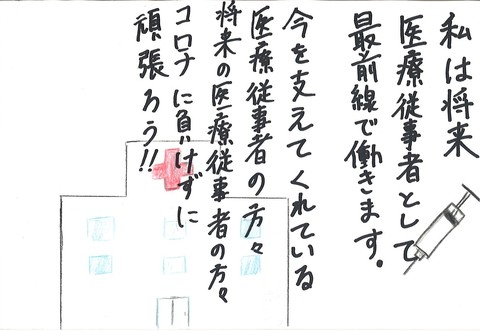 私は将来
医療従事者として
最前線で働きます。
今を支えてくれている
医療従事者の方々
将来の医療従事者の方々
コロナに負けずに
頑張ろう!!